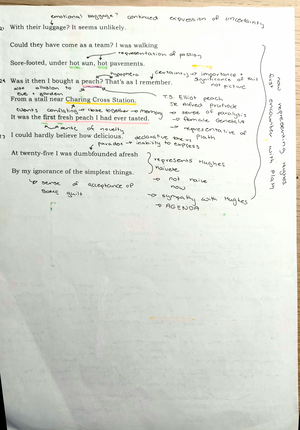 emotional baggage? continued expression of uncertainty
With their luggage? It seems unlikely.
Could they have come as a team? I was walking
representation of passion
Sore-footed, under hot sun, hot pavements.
certainty → importance +
significance of this
Was it then I bought a peach? That's as I remember.
allusion to
Eve + garden
not picture
From a stall near Charing Cross Station.
T.S. Eliot peach
Prufrock
→ sense of paralysis
→ female genitalia
memory
It was the first fresh peach I had ever tasted.
sense of novelty
→ representative of
Plath
I could hardly believe how delicious.
paradox → inability to express
At twenty-five I was dumbfounded afresh
represents Hughes
naivete
By my ignorance of the simplest things.
→ not naive
now
→ sense of acceptance of
some guilt
→ sympathy with Hughes
→ AGENDA
now representing Hughes
first encounter with Plath